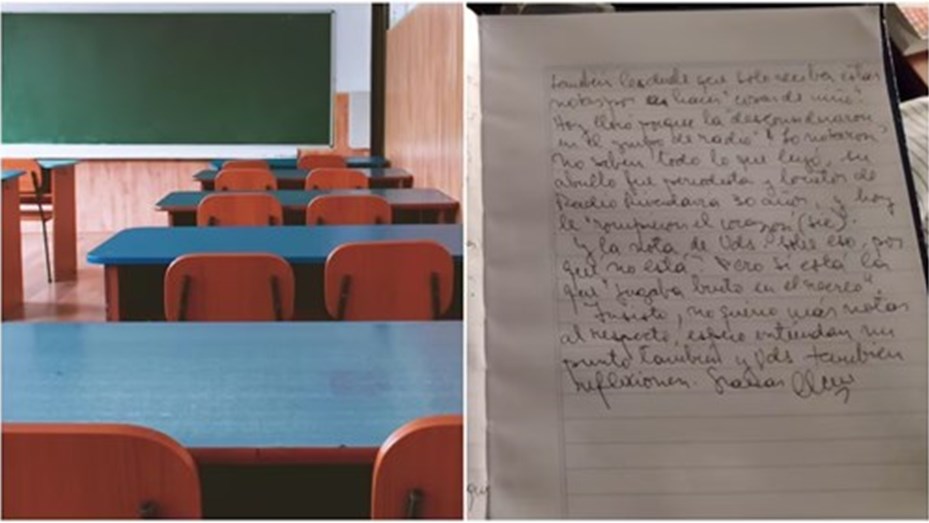 también les duele que solo reciba estas
notas por hacer "cosas de niño".
Hoy lloró porque la desconsideraron
en el grupo de radio ¿Lo notaron?
no saben todo lo que lloró, su
abuelo fue periodista y locutor de
Radio Rivadavia 30 años, y hoy
le "rompieron el corazón (sic).
Y la nota de Uds sobre eso, por
qué no está? Pero sí está la
que "jugaba bruto en el recreo".
Insisto, no quiero más notas
al respecto, espero entiendan mi
punto también y Uds también
reflexionen. Gracias